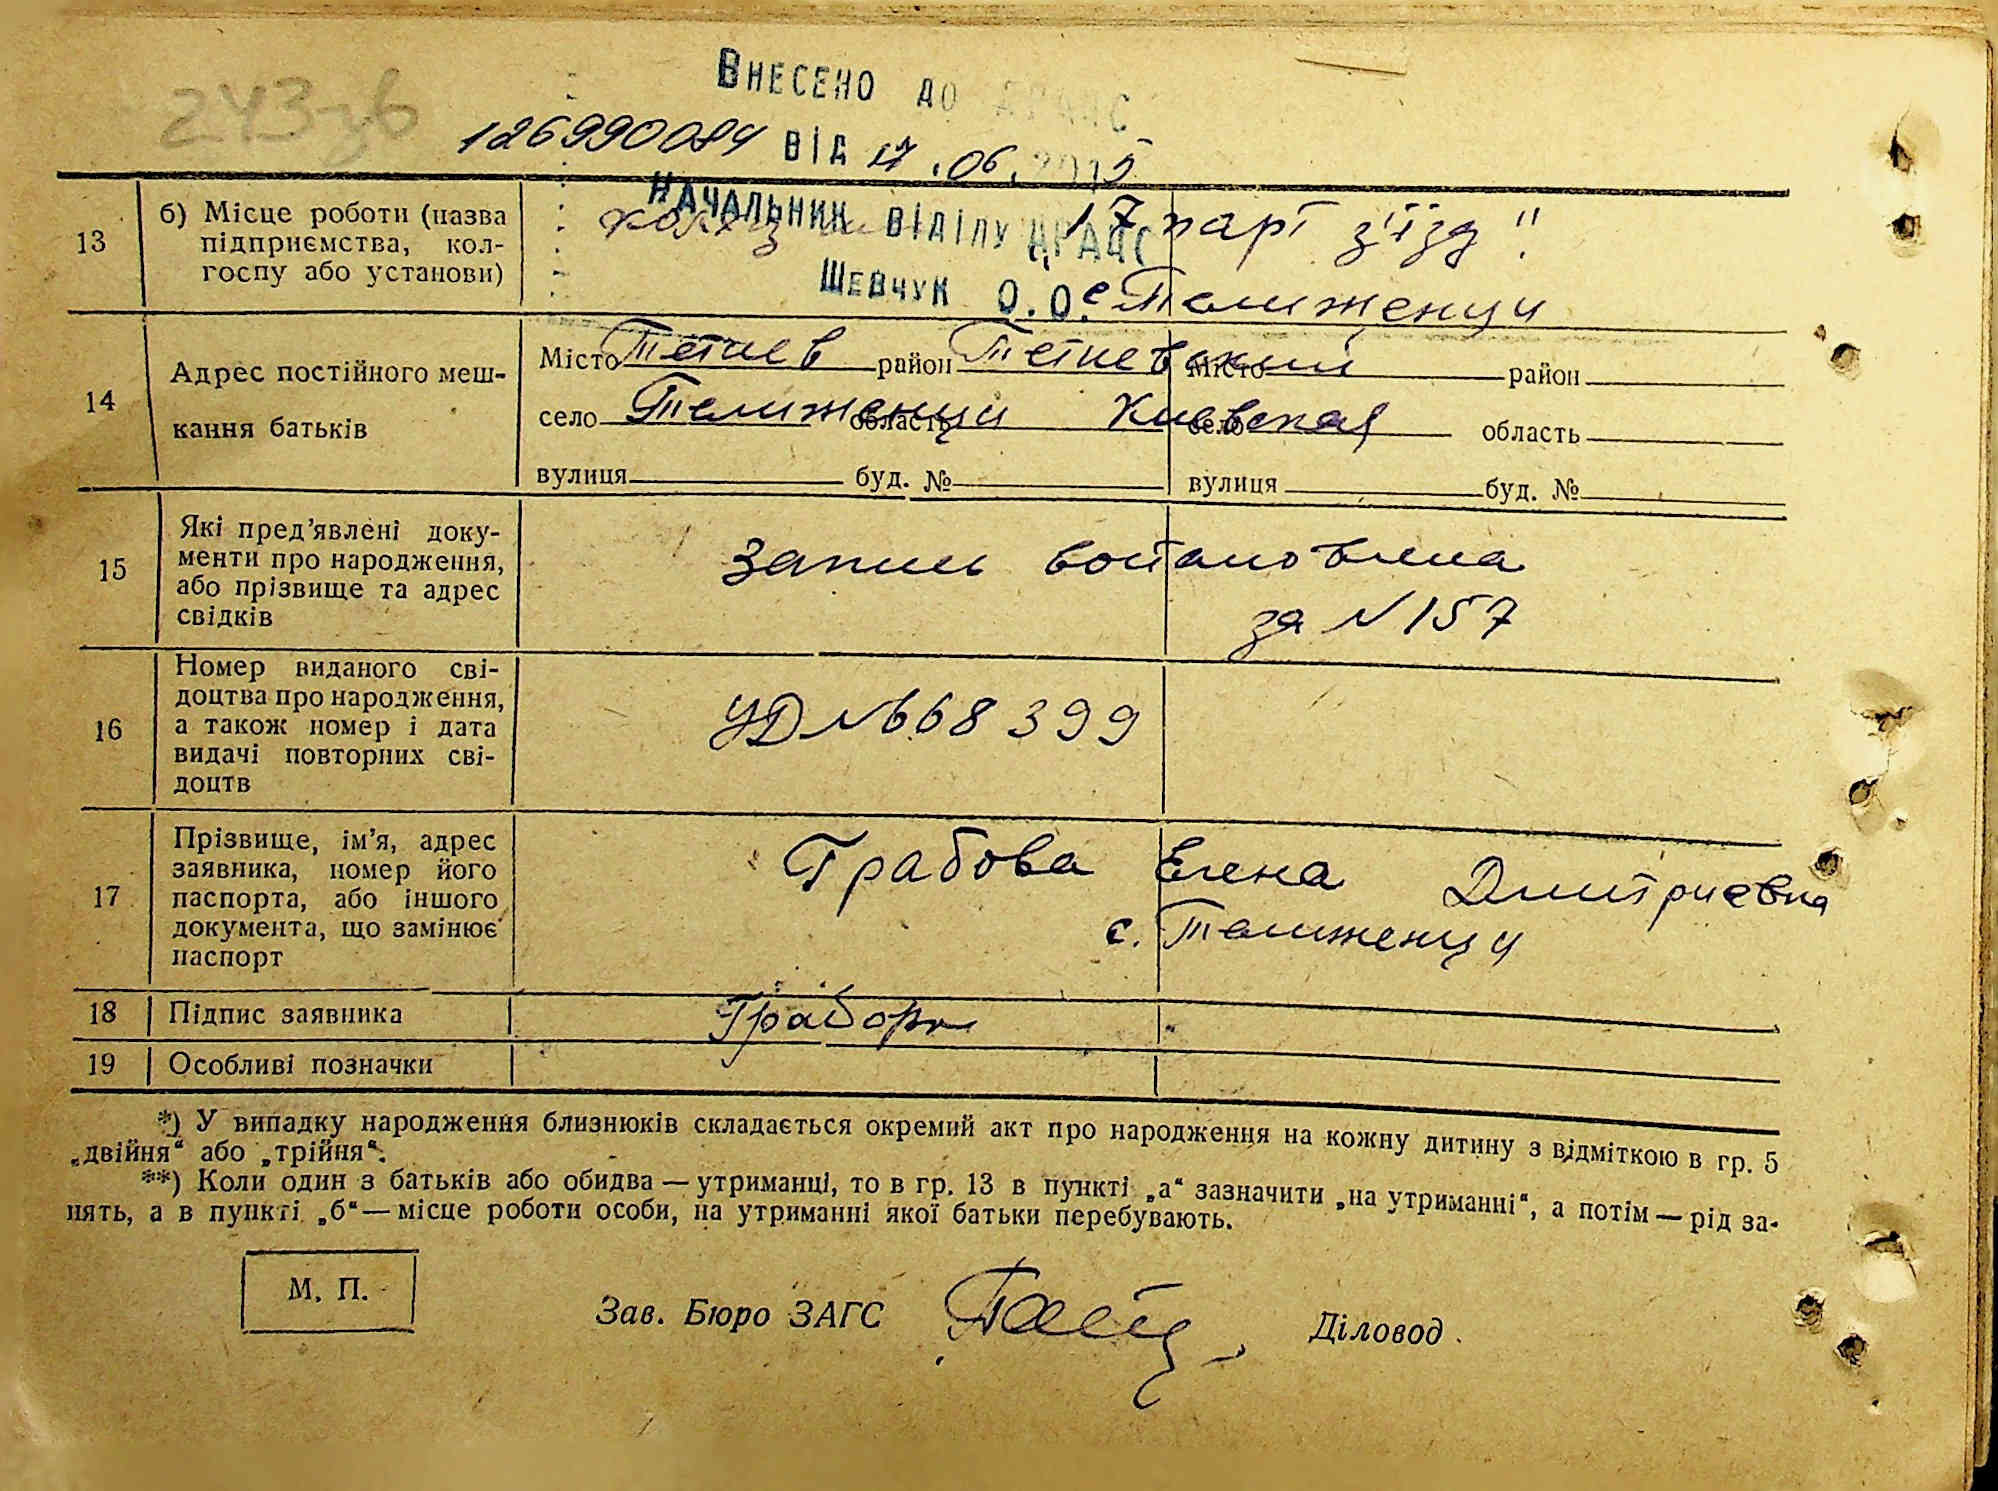 243зв
ВНЕСЕНО ДО ДРАЦС
126990084 ВІД 17.06.2015
НАЧАЛЬНИК ВІДДІЛУ ДРАЦС
ШЕВЧУК О.О.
13 б) Місце роботи (назва
підприємства, кол-
госпу або установи)
колхоз 17 парт з'їзд"
с Телиженци
14 Адрес постійного меш-
кання батьків
Місто Тетиев район Тетиевский Місто район
село Телиженци область Киевская село область
вулиця буд. № вулиця буд. №
15 Які пред'явлені доку-
менти про народження,
або прізвище та адрес
свідків
Запись востановлена
за N 157
16 Номер виданого сві-
доцтва про народження,
а також номер і дата
видачі повторних сві-
доцтв
УД N 668399
17 Прізвище, ім'я, адрес
заявника, номер його
паспорта, або іншого
документа, що замінює
паспорт
Грабова Елена Дмитриевна
с. Телиженци
18 Підпис заявника
19 Особливі позначки
*) У випадку народження близнюків складається окремий акт про народження на кожну дитину з відміткою в гр. 5
„двійня“ або „трійня“.
**) Коли один з батьків або обидва — утриманці, то в гр. 13 в пункті „а“ зазначити „на утриманні“, а потім — рід за-
нять, а в пункті „б“ — місце роботи особи, на утриманні якої батьки перебувають.
М. П.
Зав. Бюро ЗАГС Діловод